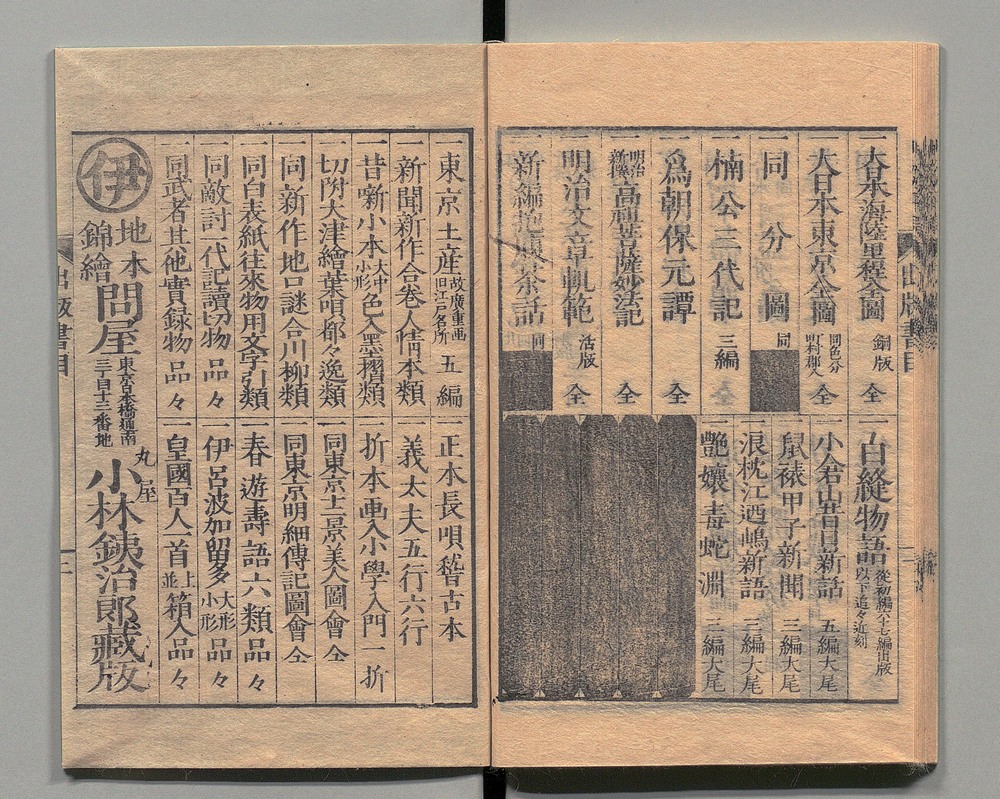 大日本海陸里程全圖 銅版 全
大日本東京全圖 同色分 町村郡入 全
同 分 圖 同
楠公三代記 三編
爲朝保元譚 全
明治新撰 高祖菩薩妙法記 全
明治文章軌範 活版 全
新編 茶話 同
一白縫物語 従初編六十七編出版 以下追々近刻
一小倉山昔日新話 五編大尾
一鼠裱甲子新聞 三編大尾
一浪枕江廼嶋新語 三編大尾
一艶孃毒蛇淵 三編大尾
出版書目
一東京土産 故廣重画 旧江戸名所 五編
一新聞新作合巻人情本類
一昔噺小本 大中小形 色入墨摺類
一切附大津繪葉唄都々逸類
一同新作地口謎合川柳類
一同白表紙往來物用文字引類
一同敵討一代記讀切物 品々
一同武者其他實録物 品々
一正本長唄稽古本
一義太夫五行六行
一折本画入小學入門一折
一同東京土景美人圖會 全
一同東京明細傳記圖會 全
一春遊壽語六類品々
一伊呂波加留多 大形小形 品々
一皇國百人一首 並上 箱入品々
伊 地本錦繪問屋 東京日本橋通南三丁目十三番地 丸屋 小林鉄治郎藏版
出版書目 二